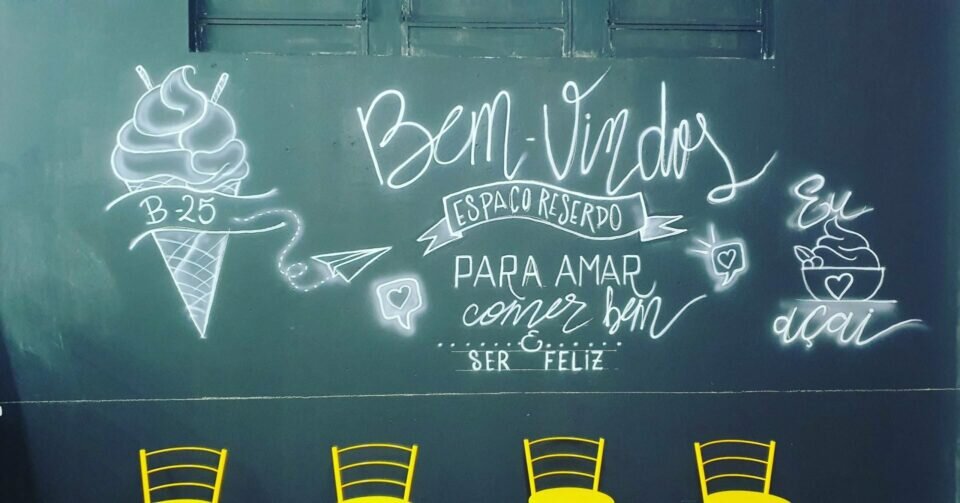 B-25
Bem-Vindos
ESPAÇO RESERDO
PARA AMAR
comer bem
&
SER FELIZ
Eu
açaí